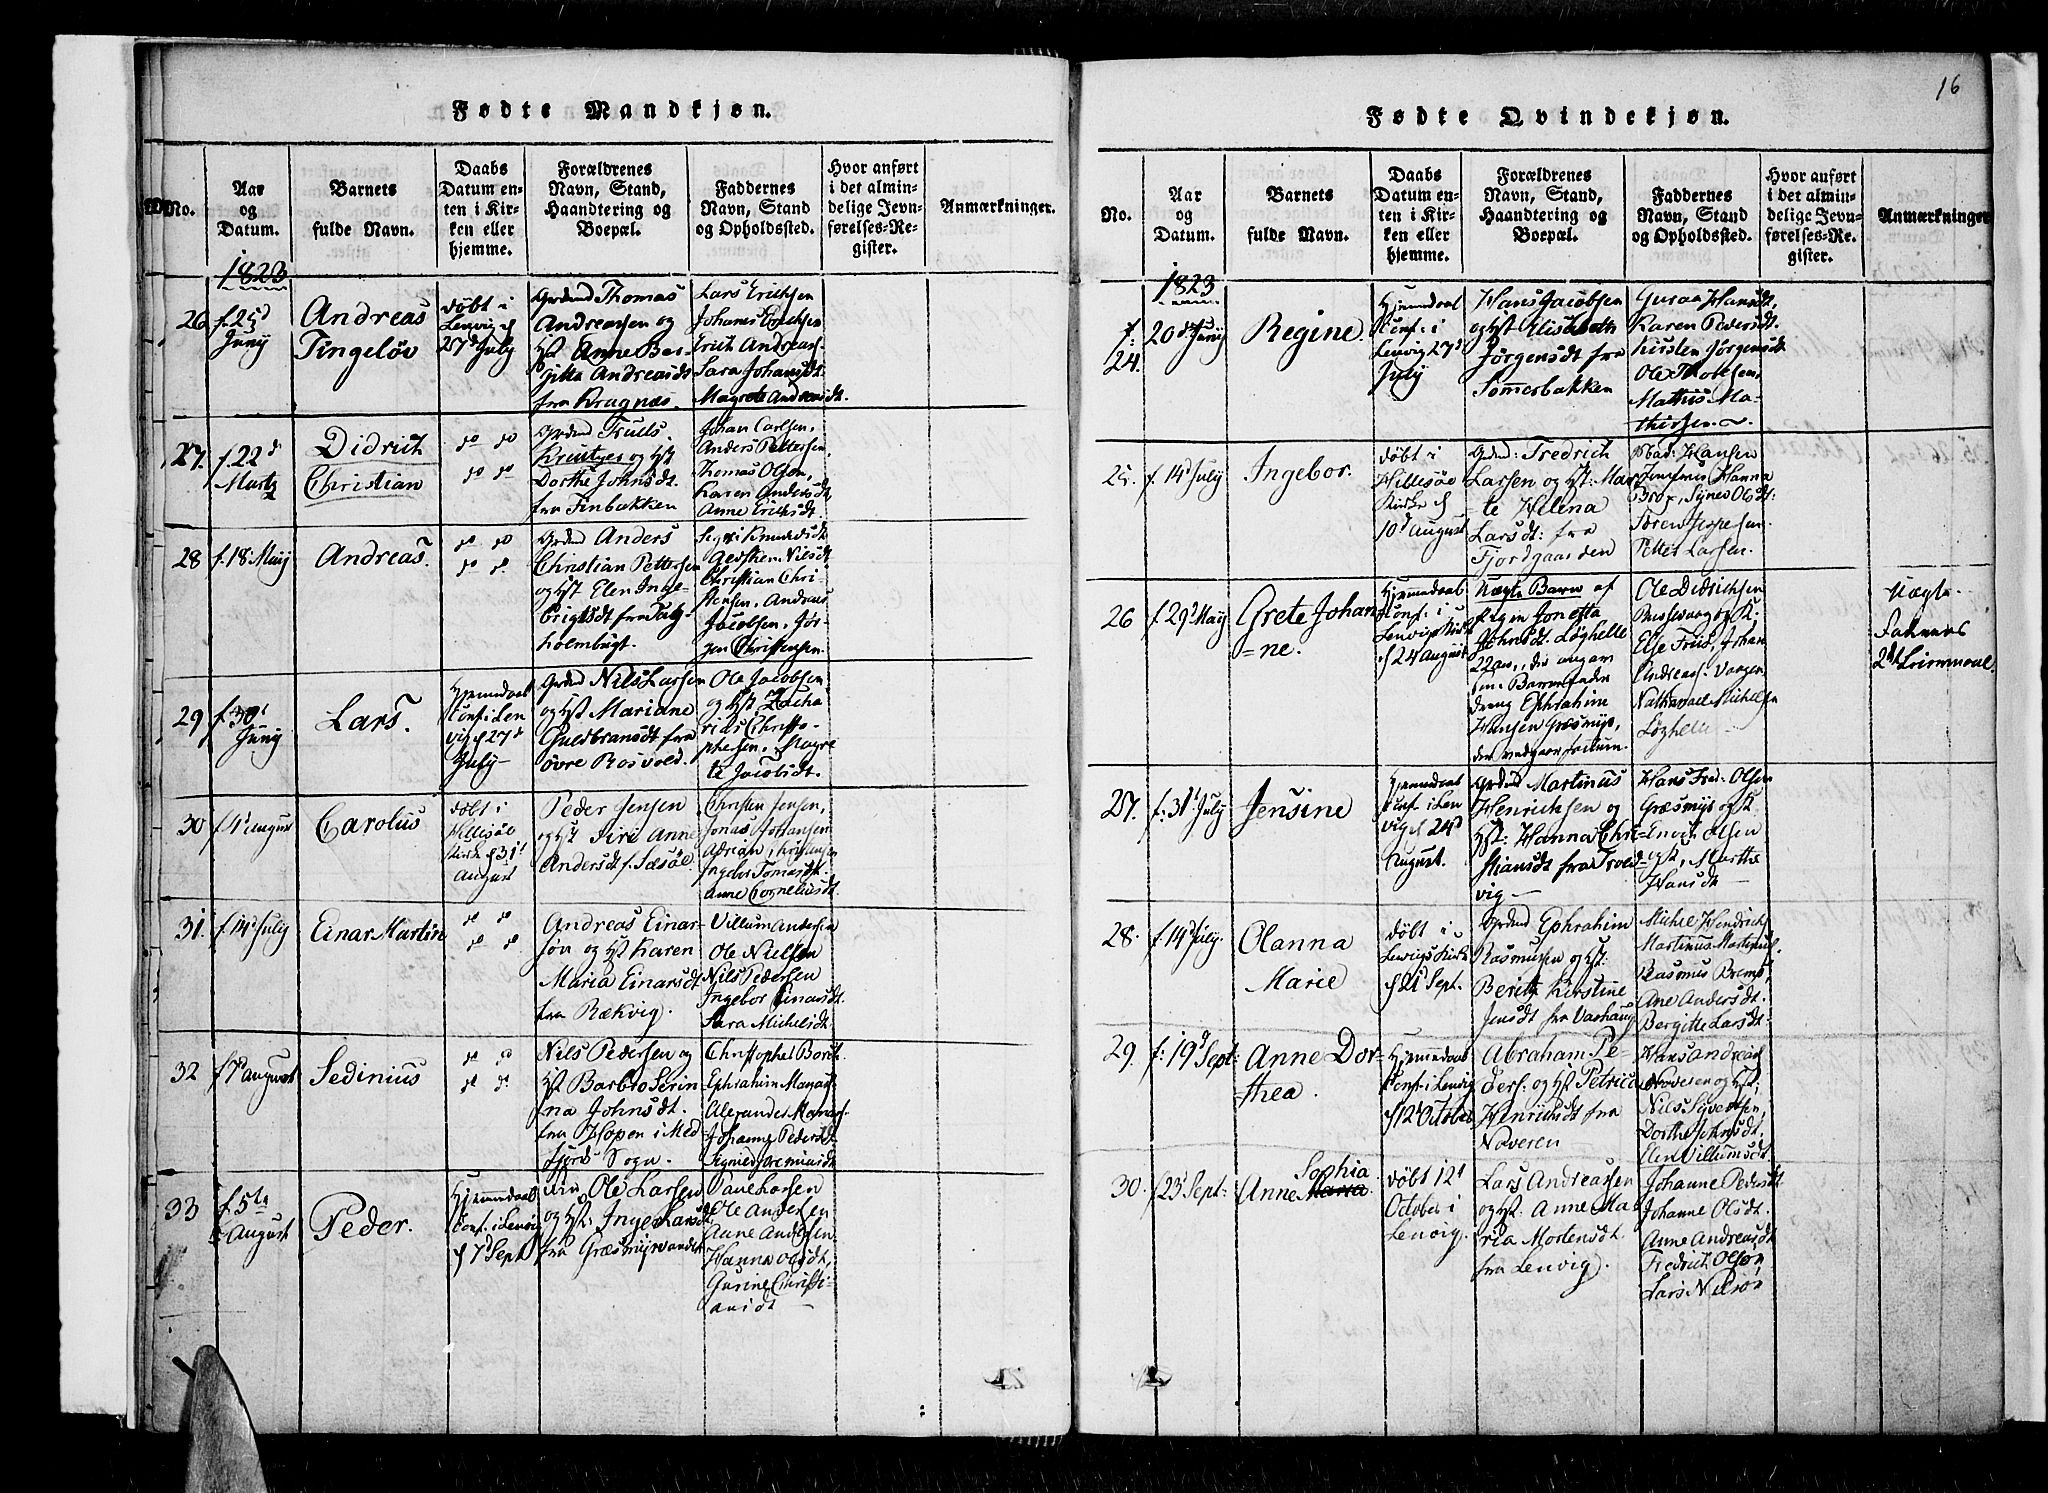 Fødte Mandkjøn.
No.
Aar
og
Datum.
Barnets
fulde Navn.
Daabs
Datum en-
ten i Kir-
ken eller
hjemme.
Forældrenes
Navn, Stand,
Haandtering og
Boepæl.
Faddernes
Navn, Stand
og Opholdssted.
Hvor anført
i det almin-
delige Jevn-
førelses-Re-
gister.
Anmærkninger.
1823
26
f. 25d
Juny
Andreas
Tingeløv
døbt i
Lenvig d
27d July
Thomas
Andreassen og
Hst Anne Ber-
gitta Andreasdt
fra Kragnæs.
Lars Erichsen
Johannes Erichsen
Erich Andreass.
Sara Johansdt.
Magrete Andreasdt.
27.
f 22d
Martz
Didrich
Christian
do do
do do
Truls
Kreutzer og Hst
Dorthe Johnsdt.
fra Finbakken
Johan Carlsen,
Anders Pettersen,
Thomas Olsen,
Karen Andersdt,
Anne Erichsdt.
28
f. 18 Maij
Andreas.
do do
do do
Anders
Christian Pettersen
og Hst Elen Inge-
brigtsdt fra
Knudsdt
Nilsdt
Christian Chri-
stensen, Andreas
Jacobsen, Jør-
gen Christensen.
29
f. 30t
Juny
Lars.
Hjemmedøbt
Conf: i Len
vig d 27d
July
Nils Larsen
og Hst Mariane
Guldbransdt fra
øvre Rosvold.
Ole Jacobsen
og Hst Zacha
rias Christo-
phersen, Magre
te Jacobsdt.
30
f 4d August
Carolus
døbt i
Hillesøe
Kirke d 31t
August
Peder Jensen
og Hst Siri Anne
Andersdt f. Sæsøe
Christen Jensen,
Jonas Johansen
Adrian
Ingebor Tomasdt
Anne Cornelius dt.
31.
f. 14d July
Einar Martin
do do
do do
Andreas Einar-
søn og Hst Karen
Maria Einarsdt
fra Rækvig.
Villum Andersen
Ole Nielsen
Nils Pedersen
Ingebor Einarsdt.
Sara Michelsdt.
32
f 7d August
Sedinius
do do
do do
Nils Pedersen og
Hst Barbro Serin
na Johnsdt.
fra Hopen i Med
fjord Sogn.
Christopher
Ephraim
Alexander
Johanna Pedersdt
33
f. 5te
August
Peder.
Conf. i Lenvig
d 7d Sept
Ole Larsen
og Hst: Inger Larsdt
fra Græsmyrvandet
Larsen
Ole Andersen
Anne Anders
Hanna Olsdt,
Gurine Christi-
ansdt
16
Fødte Qvindekjøn.
No.
Aar
og
Datum.
Barnets
fulde Navn.
Daabs
Datum en-
ten i Kir-
ken eller
hjemme.
Forældrenes
Navn, Stand,
Haandtering og
Boepæl.
Faddernes
Navn, Stand
og Opholdssted.
Hvor anført
i det almin-
delige Jevn-
førelses-Re-
gister.
Anmærkninger
1823
f:
24.
20de Juny
Regine.
Conf: i
Lenvig 27d
July
Hans Jacobsen
og Hst Elisabeth
Jørgensdt fra
Sommerbakken
Guraa Hansdt,
Karen Pedersdt.
Kirsten Jørgensdt
Ole
Mathis Ma-
thissen.
25.
f. 14d July
Ingebor.
døbt i
Hillesøe
Kirke d
10d August
Fredrich
Larsen og Hst: Mar
te Helena
Larsdt: fra
Fjordgaarden
Hansen
Jomfrue Hanna
Brox, Synes Olsdt:
Søren Jespersen.
Petter Larsen.
26
f. 29d Maij
Grete Johan
=ne.
Conf: i
Lenvigs Kirke
d 24 August
Uægte Barn af
Pigen Jonetta
Johnsdt. Løghelle
22 aar,
Ephraim
Hansen Græsmyr,
Ole Didrichsen
og K:
Else Friis, Johan
Andreas
Nathanael Michelsen
Løghelle
Uægte.
27.
f: 31t July
Jensine
Conf: i Len
vig d 24d
August.
Martinus
Henrichsen og
Hst: Hanna Chri-
stiansdt fra Troed-
vig
Hans Fred: Olsen
Græsmyr og K
Enoch Olsen
og K, Marthe
Hansdt
28.
f. 14d July.
Olanna
Marie
døbt i
Lenvigs Kirke
d 21 Sept.
Ephrahim
Rasmussen og Hst:
Berith Kirstine
Jensdt fra Vashaug
Michel Hendrichs
Martinus Martinus
Rasmus
Ane Andersdt.
Bergitte Larsdt:
29.
f: 19d Sept:
Anne Dor-
thea.
Conf: i Lenvig
d 12 October
Abraham Pe-
ders: og Hst Petrica
Henrichsdt fra
Noveren
Hans Andreas
og Hst:
Nils Sivertsen,
Dorthe Johnsdt.
Elen Villumsdt.
30.
f 23 Sept:
Sophia
Anne Maria.
døbt 12t
October i
Lenvig.
Lars Andreassen
og Hst: Anne Ma
ria Mortensdt.
fra Lenvig.
Johanne Pedersdt
Johanne Olsdt.
Anne Andreasdt
Fredrich Olsøn
Lars Nilsøn